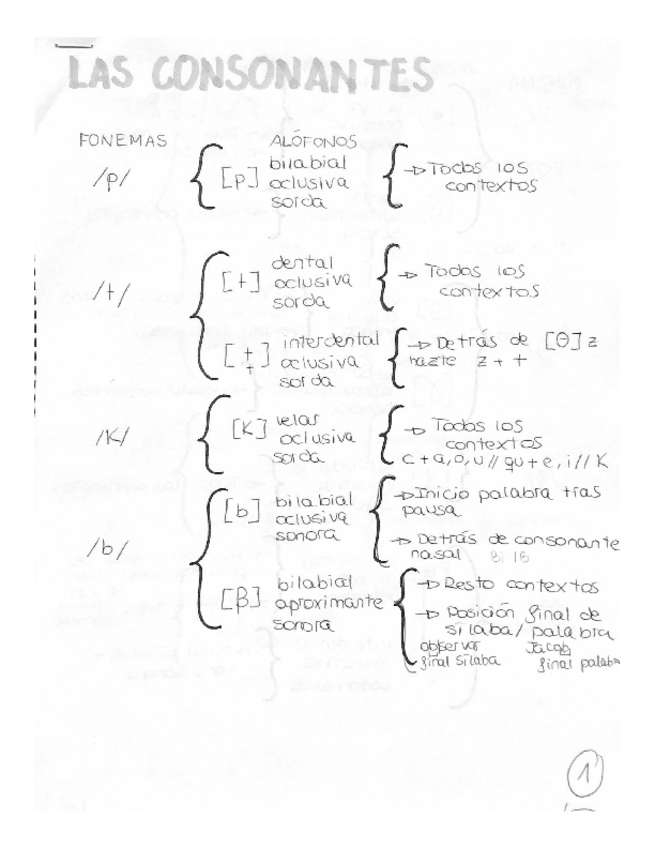 LAS CONSONANTES
FONEMAS ALÓFONOS
/p/ [p] bilabial oclusiva sorda → Todos los contextos
/t/ [t] dental oclusiva sorda → Todos los contextos
[t̟] interdental oclusiva sorda → Detrás de [θ] z
hazte z + t
/K/ [K] velar oclusiva sorda → Todos los contextos
c + a, o, u // qu + e, i // K
/b/ [b] bilabial oclusiva sonora → Inicio palabra tras pausa
→ Detrás de consonante nasal
[β] bilabial aproximante sonora → Resto contextos
→ Posición final de sílaba/palabra
observar Jacob
final sílaba final palabra
1